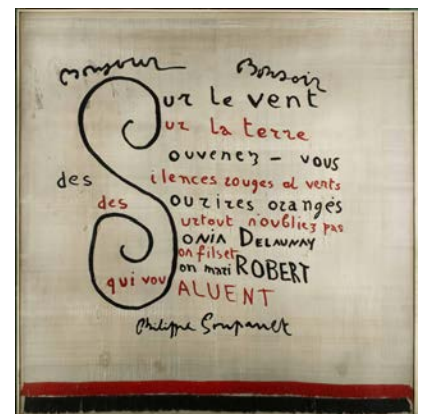 Bonjour Bonsoir
Sur le vent
Sur la terre
Souvenez - vous
des Silences rouges et verts
des Sourires orangés
Surtout n'oubliez pas
Sonia DELAUNAY
Son fils et
Son mari ROBERT
qui vouS SALUENT
Philippe Soupault